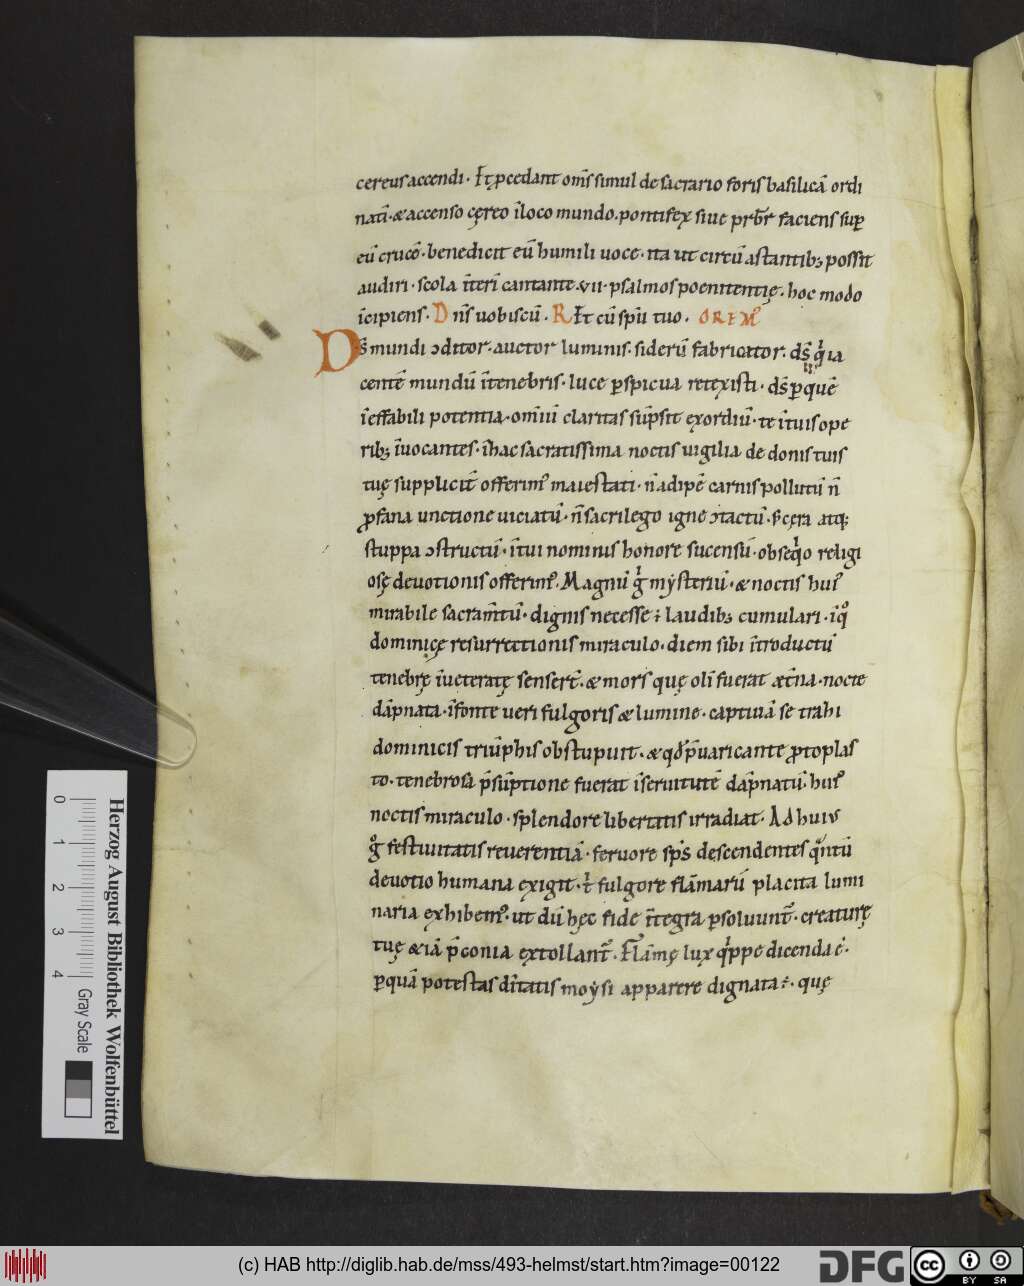 cereus accendi · Et ꝓcedant om̄s simul de sacrario foris basilicā ordi
nati · & accenso cęreo īloco mundo · pontifex siue prb̄r faciens suꝑ
eū crucē · benedicit eū humili uoce · ita ut circū astantibꝫ possit
audiri · scola īterī cantante · vii · psalmos poenitentię · hoc modo
īcipiens · Dn̄s uobiscū · R Et cū sp̄u tuo · OREM̄
Ds̄ mundi ↄditor · auctor luminis · siderū fabricator · ds̄ qͥ ia
centē mundū ītenebris · luce ꝑspicua retexisti · ds̄ ꝑ quē
īeffabili potentia · omīū claritas sūpsit exordiū · te ītuis ope
ribꝫ īuocantes · īhac sacratissima noctis uigilia de donis tuis
tuę supplicit̄ offerimꝰ maiestati · n̄ adipē carnis pollutū n̄
ꝓfana unctione uiciatū · n̄ sacrilego igne ↄtactū · s̄ cera atqꝫ
stuppa ↄstructū · ītui nominis honore sucensū · obseqͥo religi
osę deuotionis offerimꝰ. Magnū gͥ mẏsteriū · & noctis huiꝰ
mirabile sacram̄tū · dignis necesse ÷ laudibꝫ cumulari · īqͦ
dominicę resurrectionis miraculo · diem sibi ītroductū
tenebrę īueteratę senser̄t · & mors quę olī fuerat æt̄na · nocte
dāpnata · īfonte ueri fulgoris & lumine · captiuā se trahi
dominicis triūphis obstupuit · & qđ p̄uaricante ꝓtoplas
to · tenebrosa p̄sūptione fuerat īseruitutē dāpnatū · huiꝰ
noctis miraculo · splendore libertatis irradiat · Ad huius
gͦ festiuitatis reuerentiā · feruore sp̄s descendentes qͣntū
deuotio humana exigit · tͥ fulgore flāmarū placita lumi
naria exhibemꝰ · ut dū hęc fide ītegra ꝑsoluunt̄ · creaturę
tuę & iā p̄conia extollant̄ · Flāmę lux qͥppe dicenda ē ·
ꝑquā potestas dītatis moẏsi apparere dignata ÷ · quę
0 1 2 3 4
Gray Scale
Herzog August Bibliothek Wolfenbüttel
(c) HAB http://diglib.hab.de/mss/493-helmst/start.htm?image=00122
DFG
cc BY SA